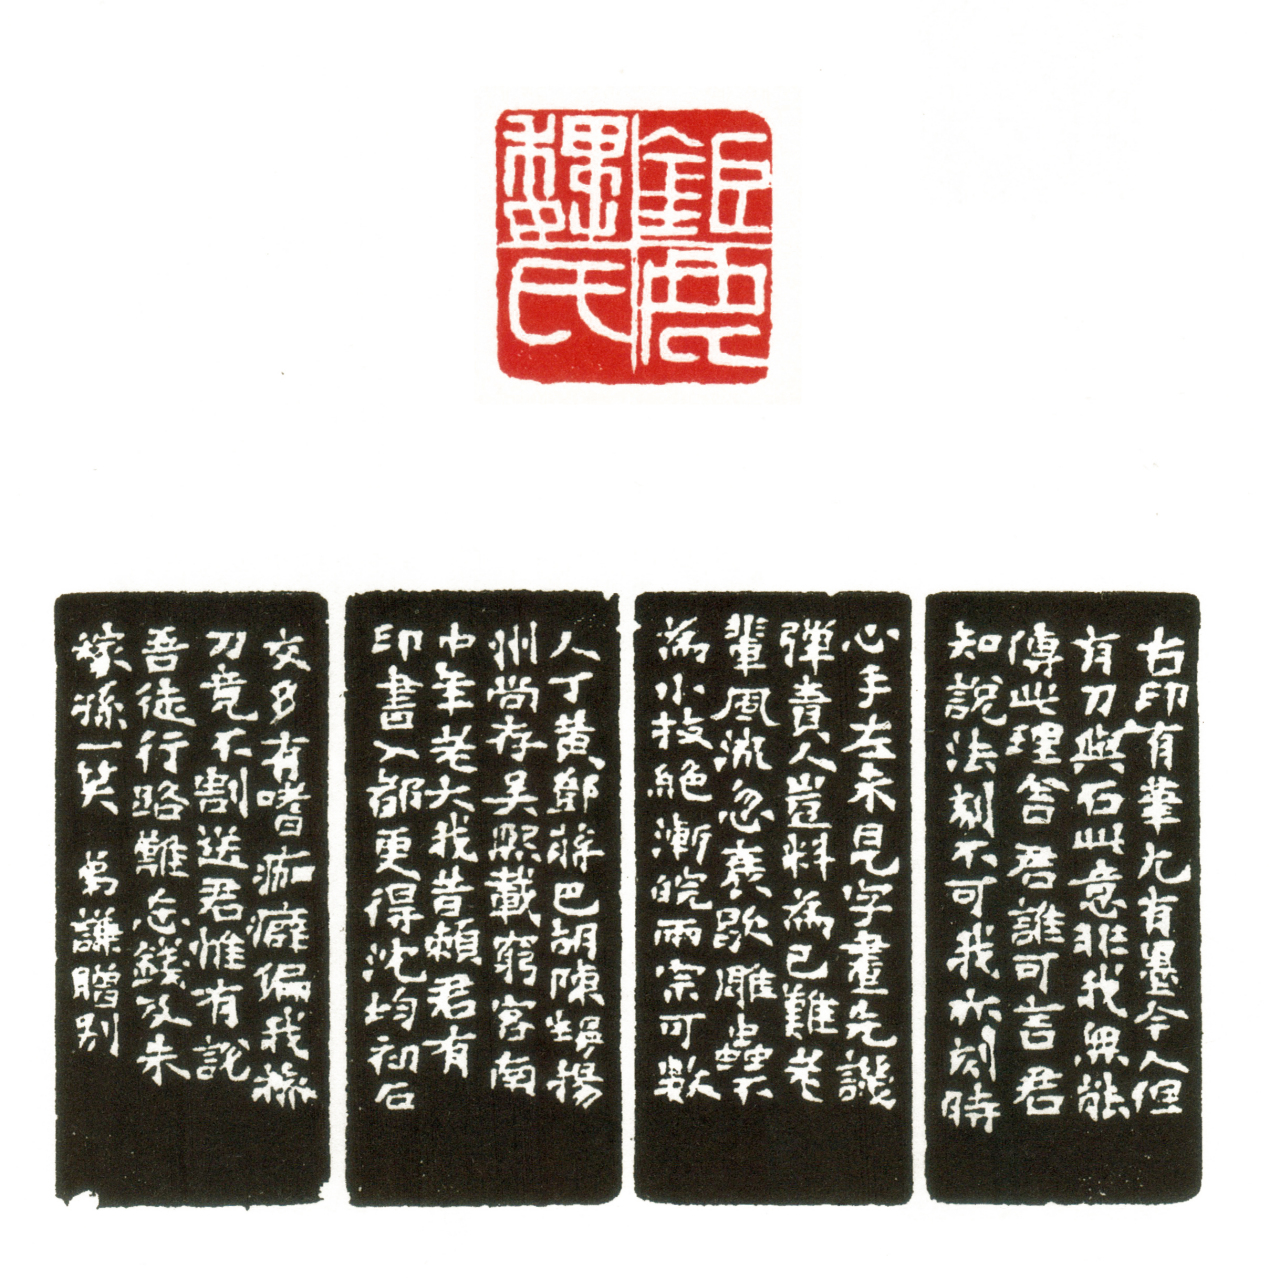 鉅鹿
魏氏
古印有筆尤有墨今人但
有刀與石此意非我無能
傳此理答君誰可言君
知說法刻不可我亦刻時
心手左未見字畫先譏
彈責人豈料為己難老
輩風流忽衰歇雕蟲不
為小技絕浙皖兩宗可數
人丁黃鄧蔣巴胡陳揚
州尚存吳熙載窮客南
中年老大我昔賴君有
印書入都更得沈均初石
交多有嗜痂癖偏我操
刀竟不割送君惟有說
吾徒行路難忘錢及朱
稼孫一笑 為謙贈別